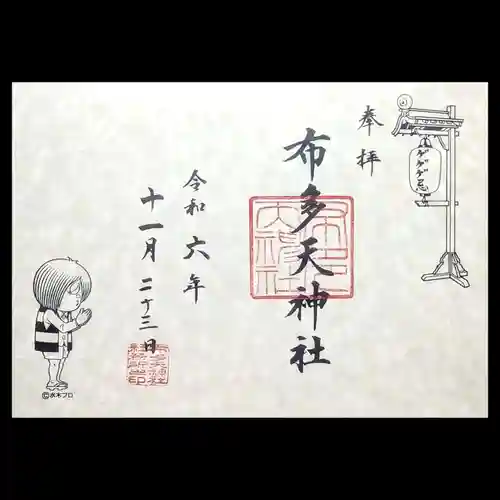 奉拝
布多天神社
令和六年
十一月二十三日
ゲゲゲ忌
©水木プロ